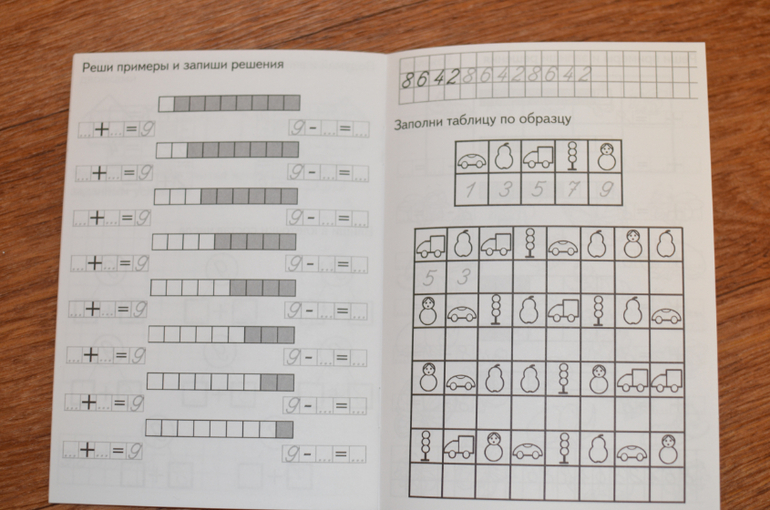 Реши примеры и запиши решения
... + ... = 9 9 - ... = ...
... + ... = 9 9 - ... = ...
... + ... = 9 9 - ... = ...
... + ... = 9 9 - ... = ...
... + ... = 9 9 - ... = ...
... + ... = 9 9 - ... = ...
... + ... = 9 9 - ... = ...
... + ... = 9 9 - ... = ...
864286428642
Заполни таблицу по образцу
1 3 5 7 9
5 3